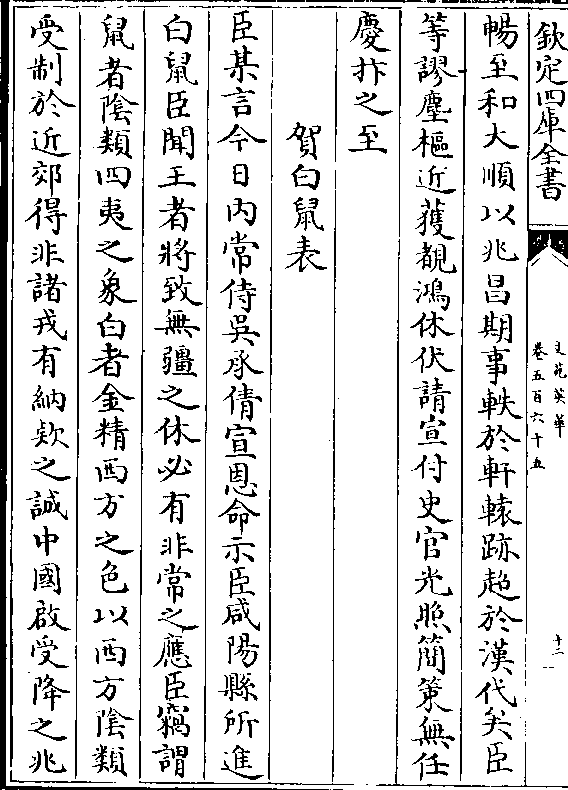 欽定四庫全書
文苑英華
卷五百六十五
十二
暢至和大順以兆昌期事軼於軒轅跡超於漢代矣臣
等謬塵樞近獲覩鴻休伏請宣付史官光照簡策無任
慶抃之至
賀白鼠表
臣某言今日内常侍吳承倩宣恩命示臣咸陽縣所進
白鼠臣聞王者將致無疆之休必有非常之應臣竊謂
鼠者陰類四夷之象白者金精西方之色以西方陰類
受制於近郊得非諸戎有納欵之誠中國啟受降之兆